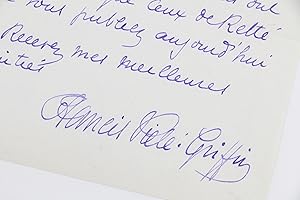 ont
que Ceux de Retté
vous publiez aujourd'hui
Recevez mes meilleures
Francis Vielé-Griffin